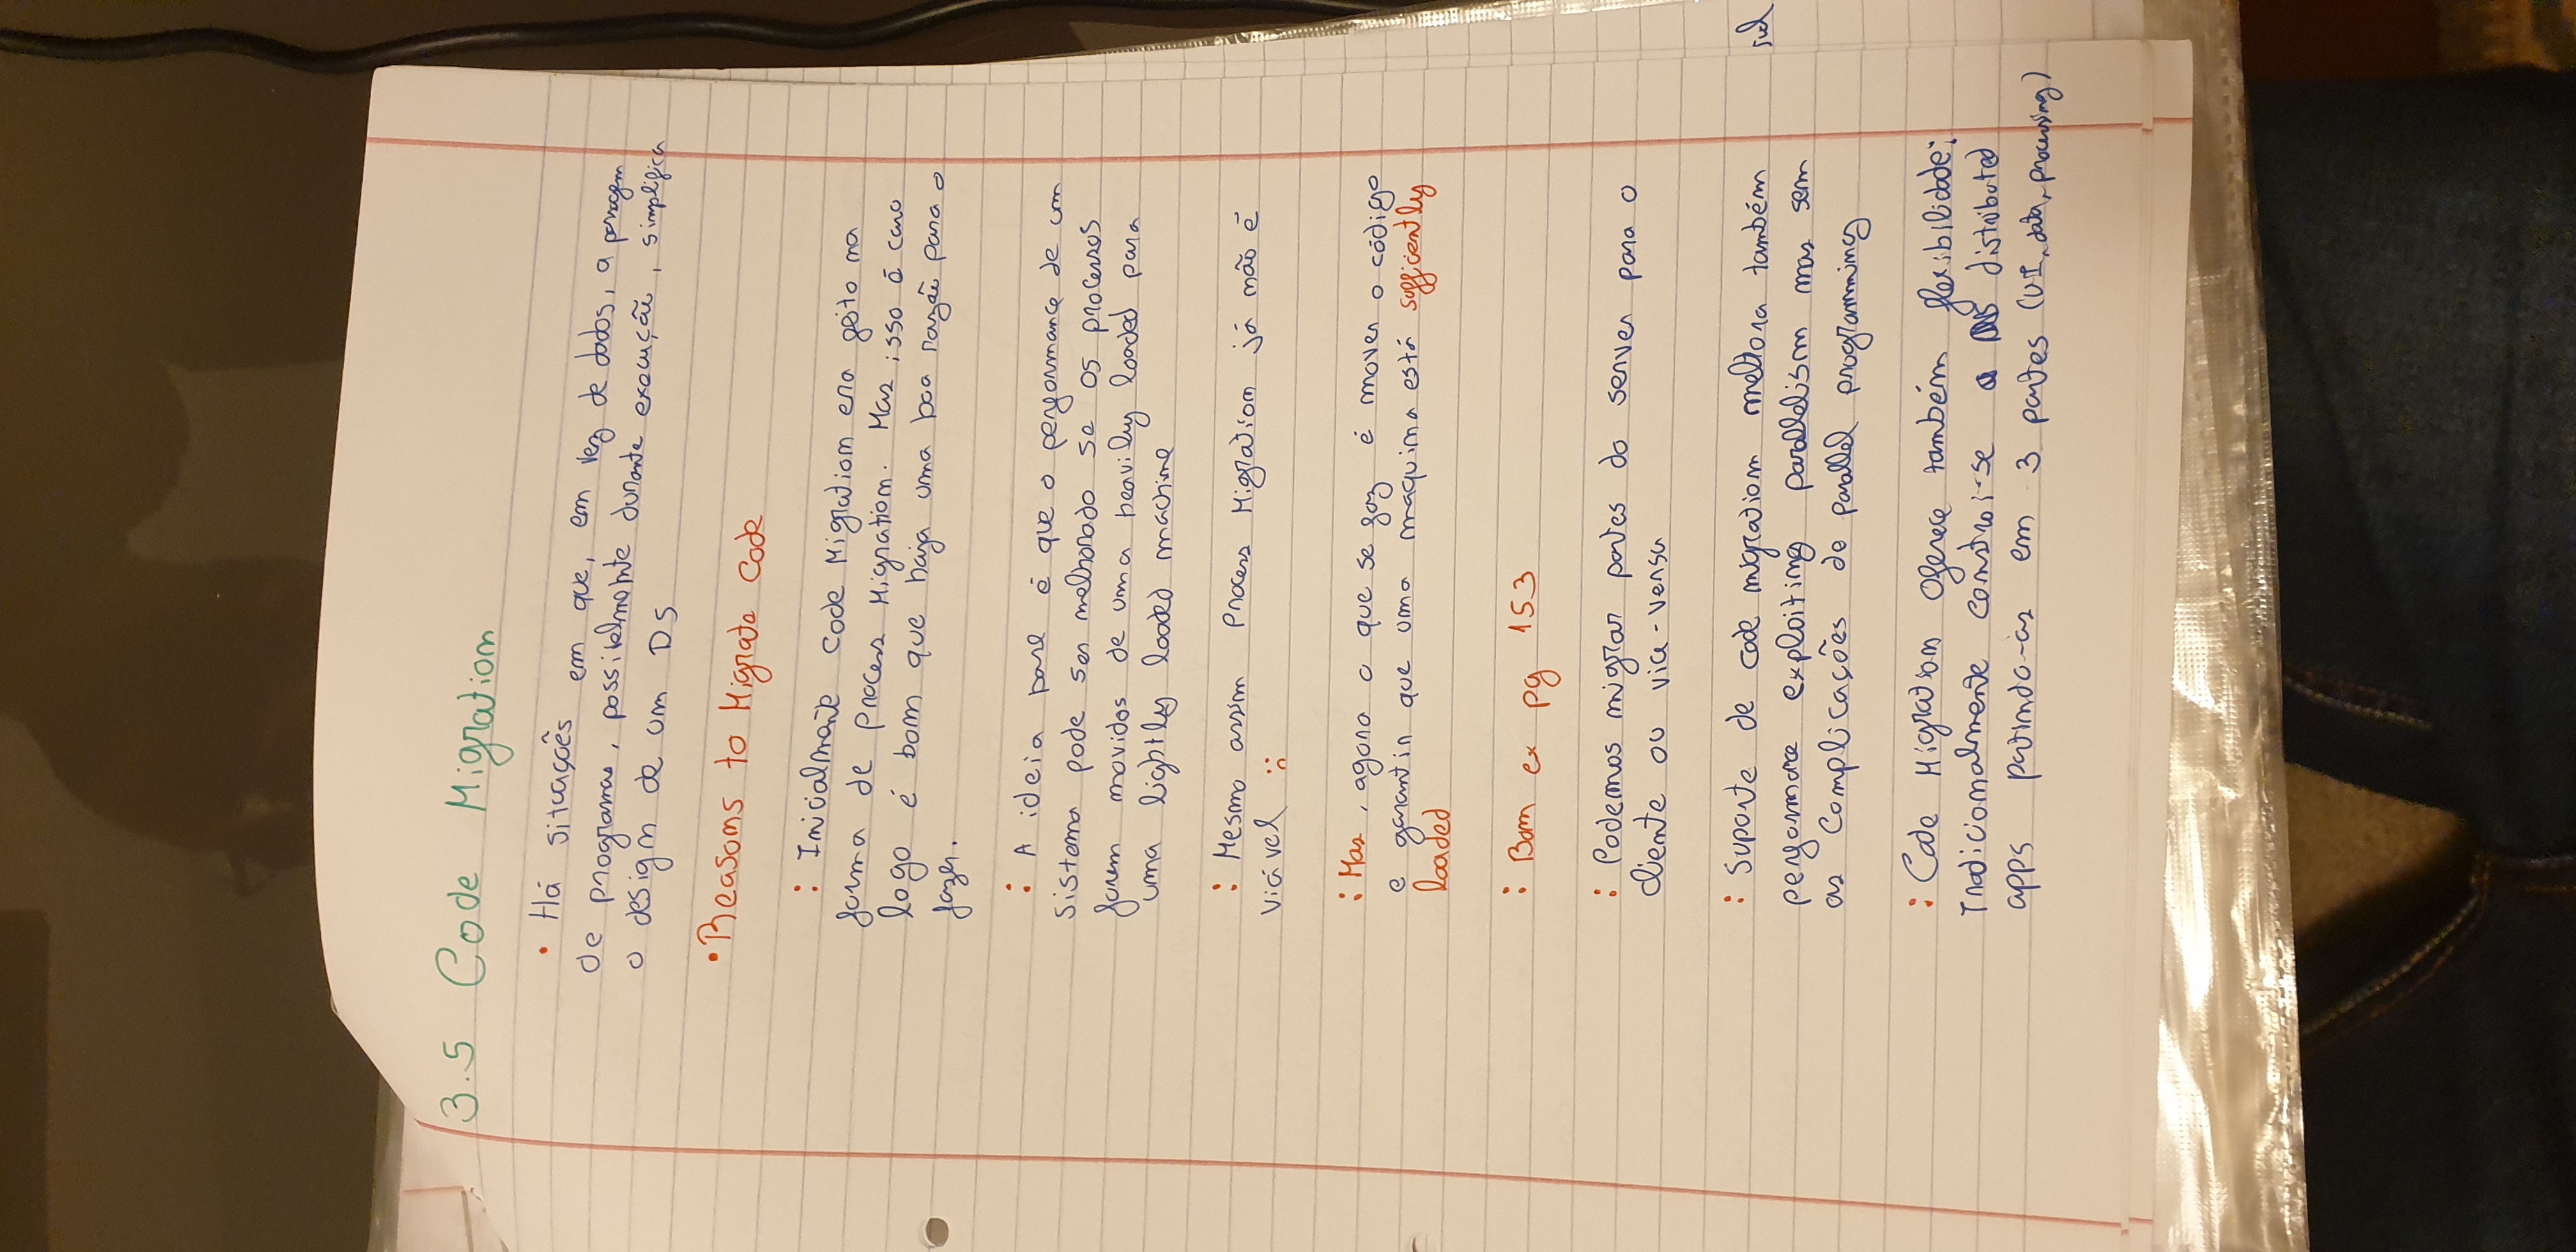 3.5 Code Migration
• Há situações em que, em vez de dados, a passagem
de programas, possivelmente durante execução, simplifica
o design de um DS
• Reasons to Migrate Code
: Inicialmente Code Migration era feito na
forma de Process Migration. Mas isso é caro
logo é bom que haja uma boa razão para o
fazer.
: A ideia base é que o performance de um
sistema pode ser melhorado se os processos
forem movidos de uma heavily loaded para
uma lightly loaded machine
: Mesmo assim Process Migration já não é
viável :(
: Mas, agora o que se faz é mover o código
e garantir que uma maquina está sufficiently
loaded
: Bom ex pg 153
: Podemos migrar partes do server para o
cliente ou vice-versa
: Suporte de code migration melhora também
performance exploiting parallelism mas sem
as complicações de parallel programming
: Code Migration oferece também flexibilidade:
Tradicionalmente constroi-se distributed
apps partindo-as em 3 partes (UI, data, processing)